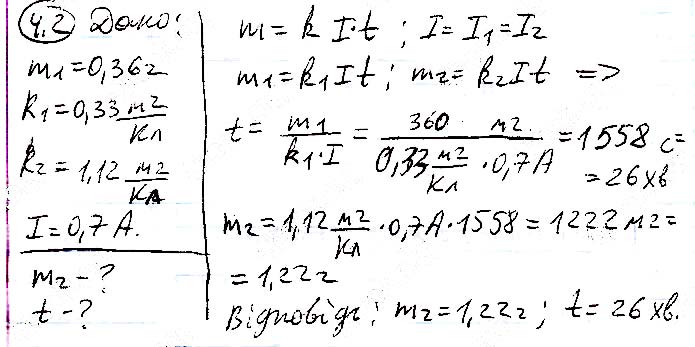 4.2 Дано:
m₁=0,36г
k₁=0,33 мг/Кл
k₂=1,12 мг/Кл
I=0,7А.
m₂-?
t-?
m=k I·t ; I=I₁=I₂
m₁=k₁It ; m₂=k₂It =>
t= m₁/(k₁·I) = 360 мг/(0,33 мг/Кл ·0,7А) =1558 с=
=26хв
m₂=1,12 мг/Кл ·0,7А·1558=1222мг=
=1,22г
Відповідь: m₂=1,22г; t=26хв.